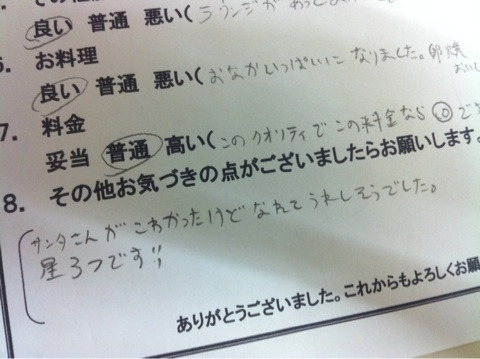 良い 普通 悪い(ラウンジが
6. お料理
良い 普通 悪い(おなかいっぱいになりました。卵焼
おいし
7. 料金
妥当 普通 高い(このクオリティでこの料金なら◎で
8. その他お気づきの点がございましたらお願いします。
サンタさんがこわかったけどなれてうれしそうでした。
星3つです!!
ありがとうございました。これからもよろしくお願